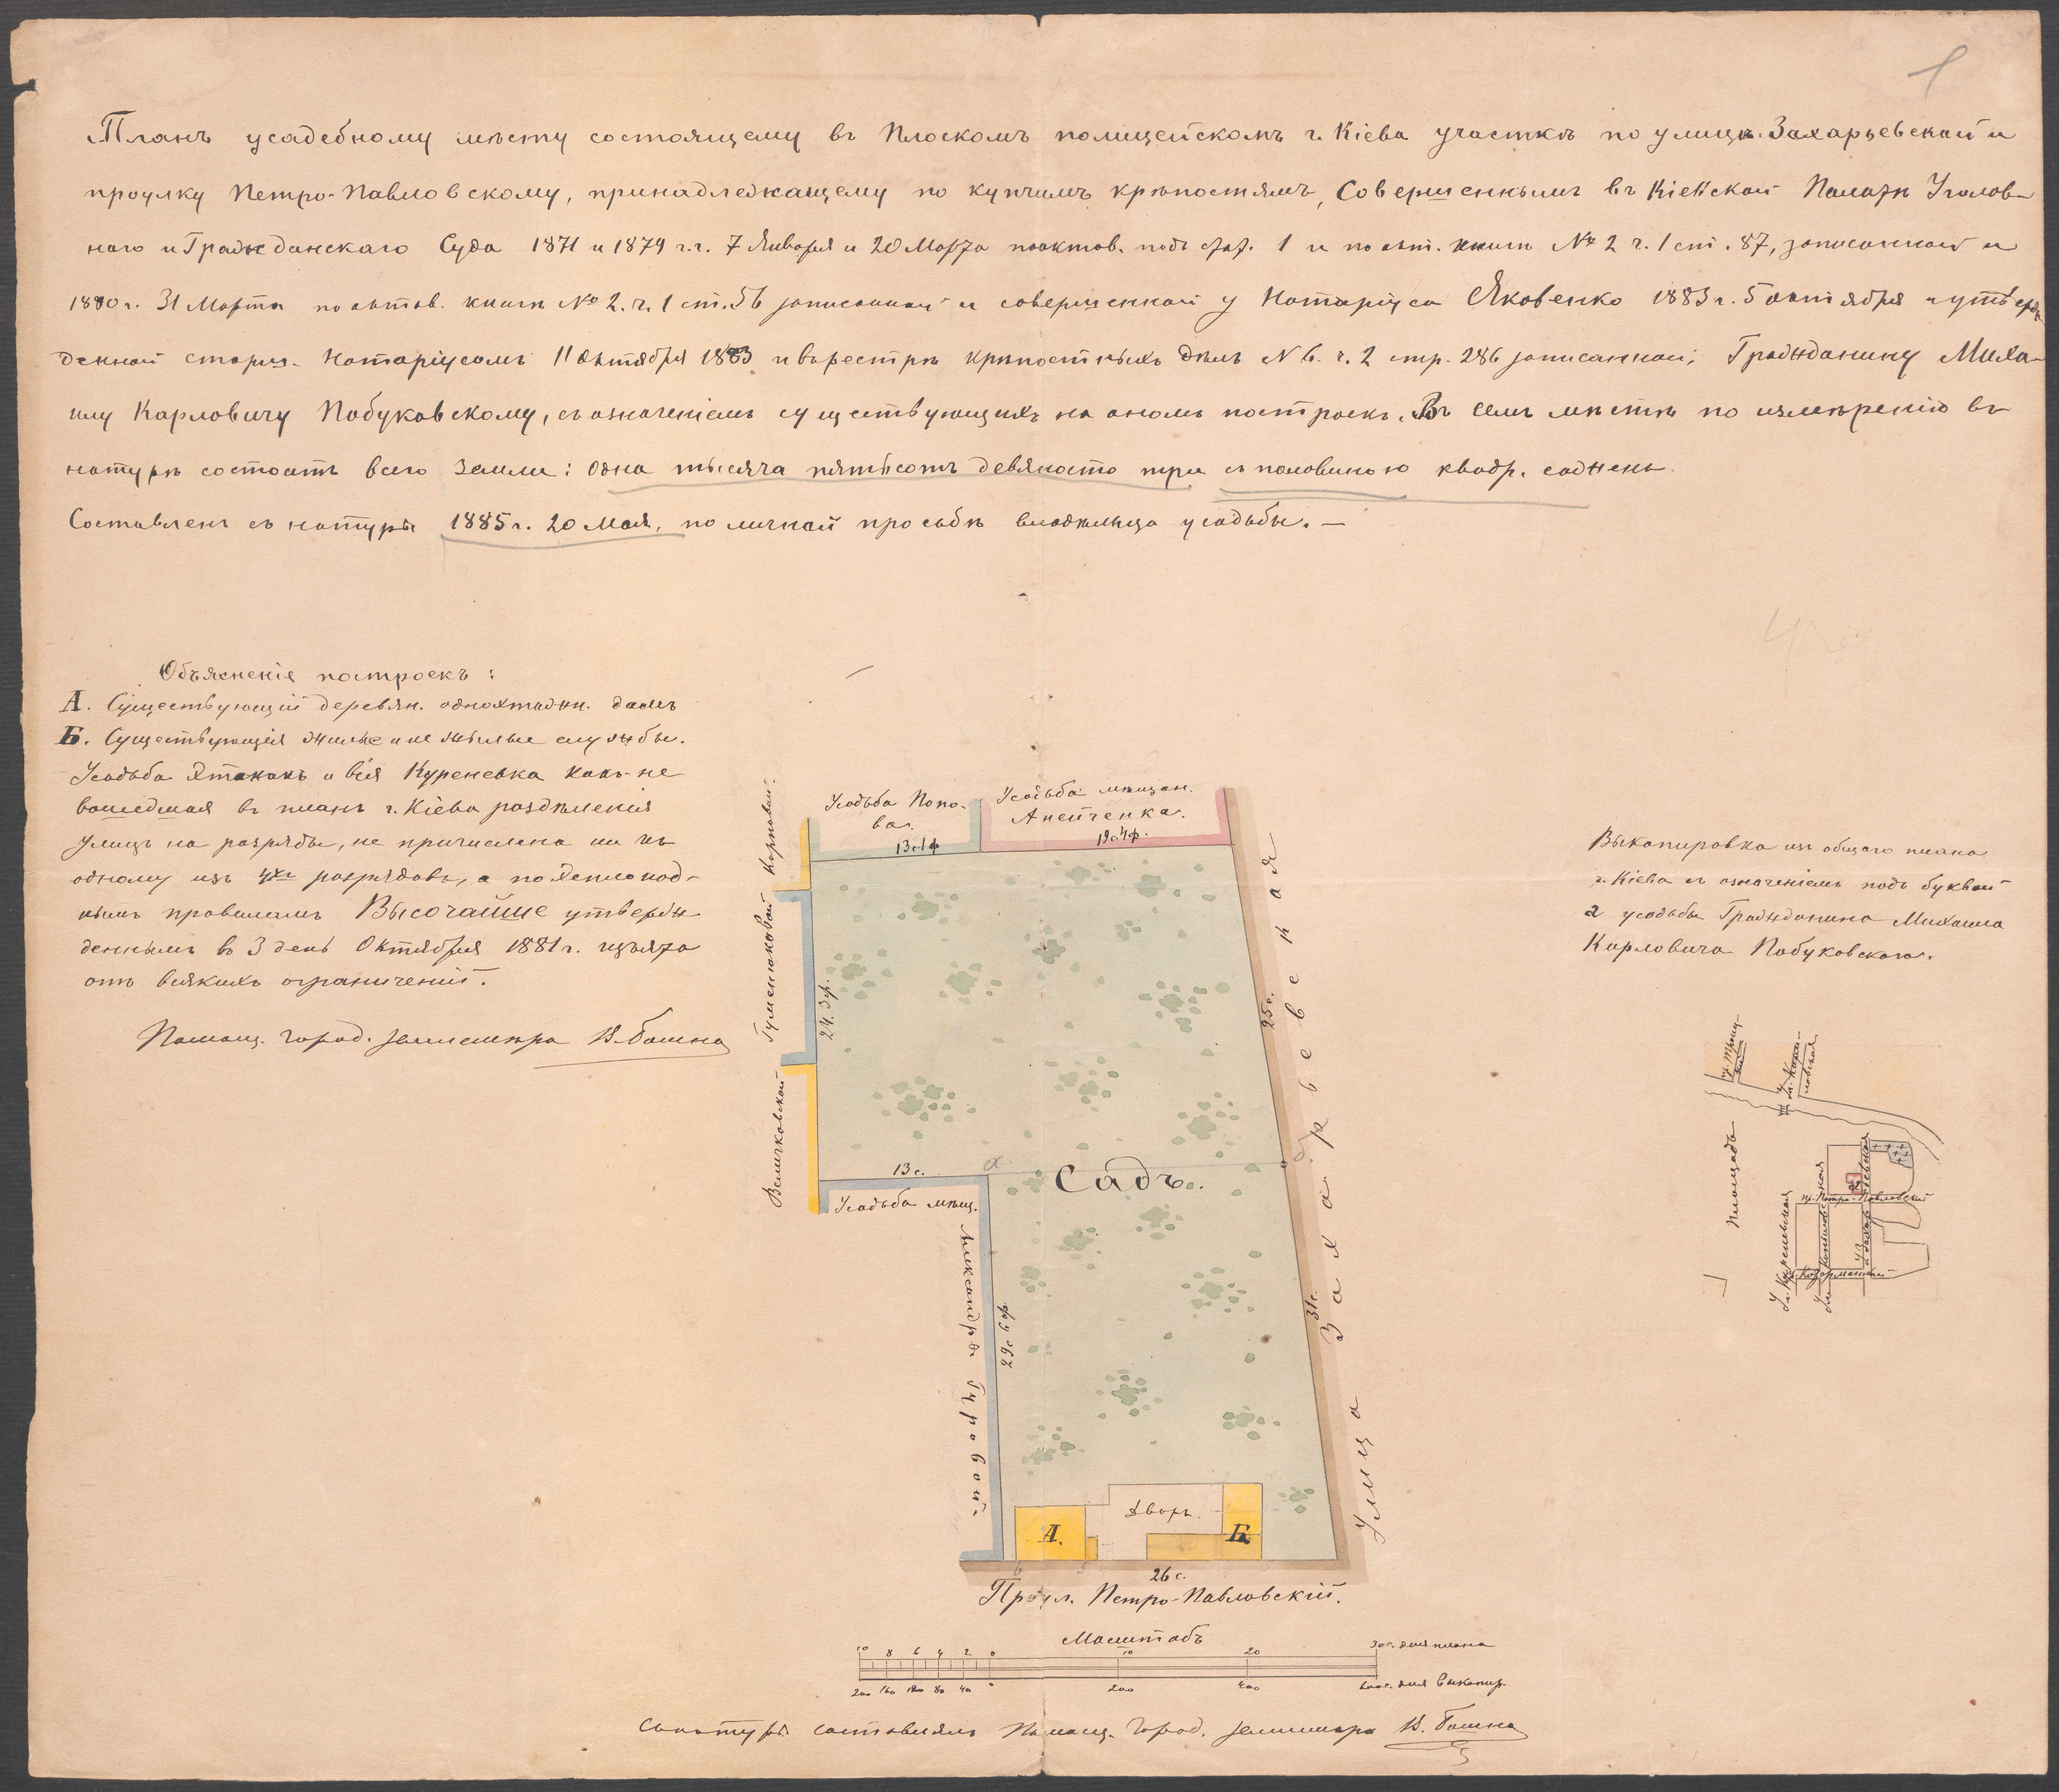 Планъ усадебному мѣсту состоящему въ Плоскомъ полицейскомъ г. Кіева участкѣ по улицѣ Захарьевской и
проулку Петро-Павловскому, принадлежащему по купчимъ крѣпостямъ, Совершеннымъ въ Кіевской Палатѣ Уголов-
наго и Гражданскаго Суда 1871 и 1879 г.г. 7 Января и 20 Марта по актов. подъ 1 и по акт. книгѣ № 2 ч. 1 ст. 87, записанной и
1880 г. 31 Марта по актов. книгѣ № 2. ч. 1 ст. 56 записанной и совершенной у Нотаріуса Яковенко 1883 г. 5 октября и утверж
денной старш. Нотаріусомъ 11 октября 1883 и въ реестрѣ крѣпостныхъ дѣлъ № 6. ч. 2 стр. 286 записанной; Гражданину Миха-
илу Карловичу Побуковскому, съ означеніемъ существующихъ на ономъ построекъ. Въ семъ мѣстѣ по измѣренію въ
натурѣ состоитъ всего земли: одна тысяча пятьсотъ девяносто три съ половиною квадр. сажень.
Составленъ съ натуры 1885 г. 20 Мая, по личной просьбѣ владѣльца усадьбы. —
Объясненіе построекъ:
А. Существующій деревян. одноэтажн. домъ
Б. Существующія жилые и не жилые службы.
Усадьба Этакакъ и вся Куреневка какъ не
вошедшая въ планъ г. Кіева раздѣленія
улицъ на разряды, не причислена ни къ
одному изъ 4хъ разрядовъ, а по
нымъ правиламъ Высочайше утверж-
деннымъ въ 3 день Октября 1881 г. изъята
отъ всякихъ ограниченій.
Помощ. Город. землемѣра
Усадьба Попо-
ва.
Усадьба мѣщан.
13 с. 1 ф
19 с. 4 ф.
Карповой.
Гуменюковой
Величковской
24. 3 ф.
25 с.
13 с.
а
б
Садъ.
Усадьба мѣщ.
Александры Гуровой.
29 с 6 ф.
31 с.
Улица Захарьевская
Дворъ.
А.
Б
26 с.
Проул. Петро-Павловскій.
Выкопировка изъ общаго плана
г. Кіева съ означеніемъ подъ буквой
а усадьбы Гражданина Михаила
Карловича Побуковскаго.
Площадь
пр. Петро-Павловскій
Ул. Куреневская
Масштабъ
10 8 6 4 2 0 10 20 30 с. для плана
200 160 120 80 40 0 200 400 600 с. для выкопир.
Съ натуры составлялъ Помощ. Город. землемѣра